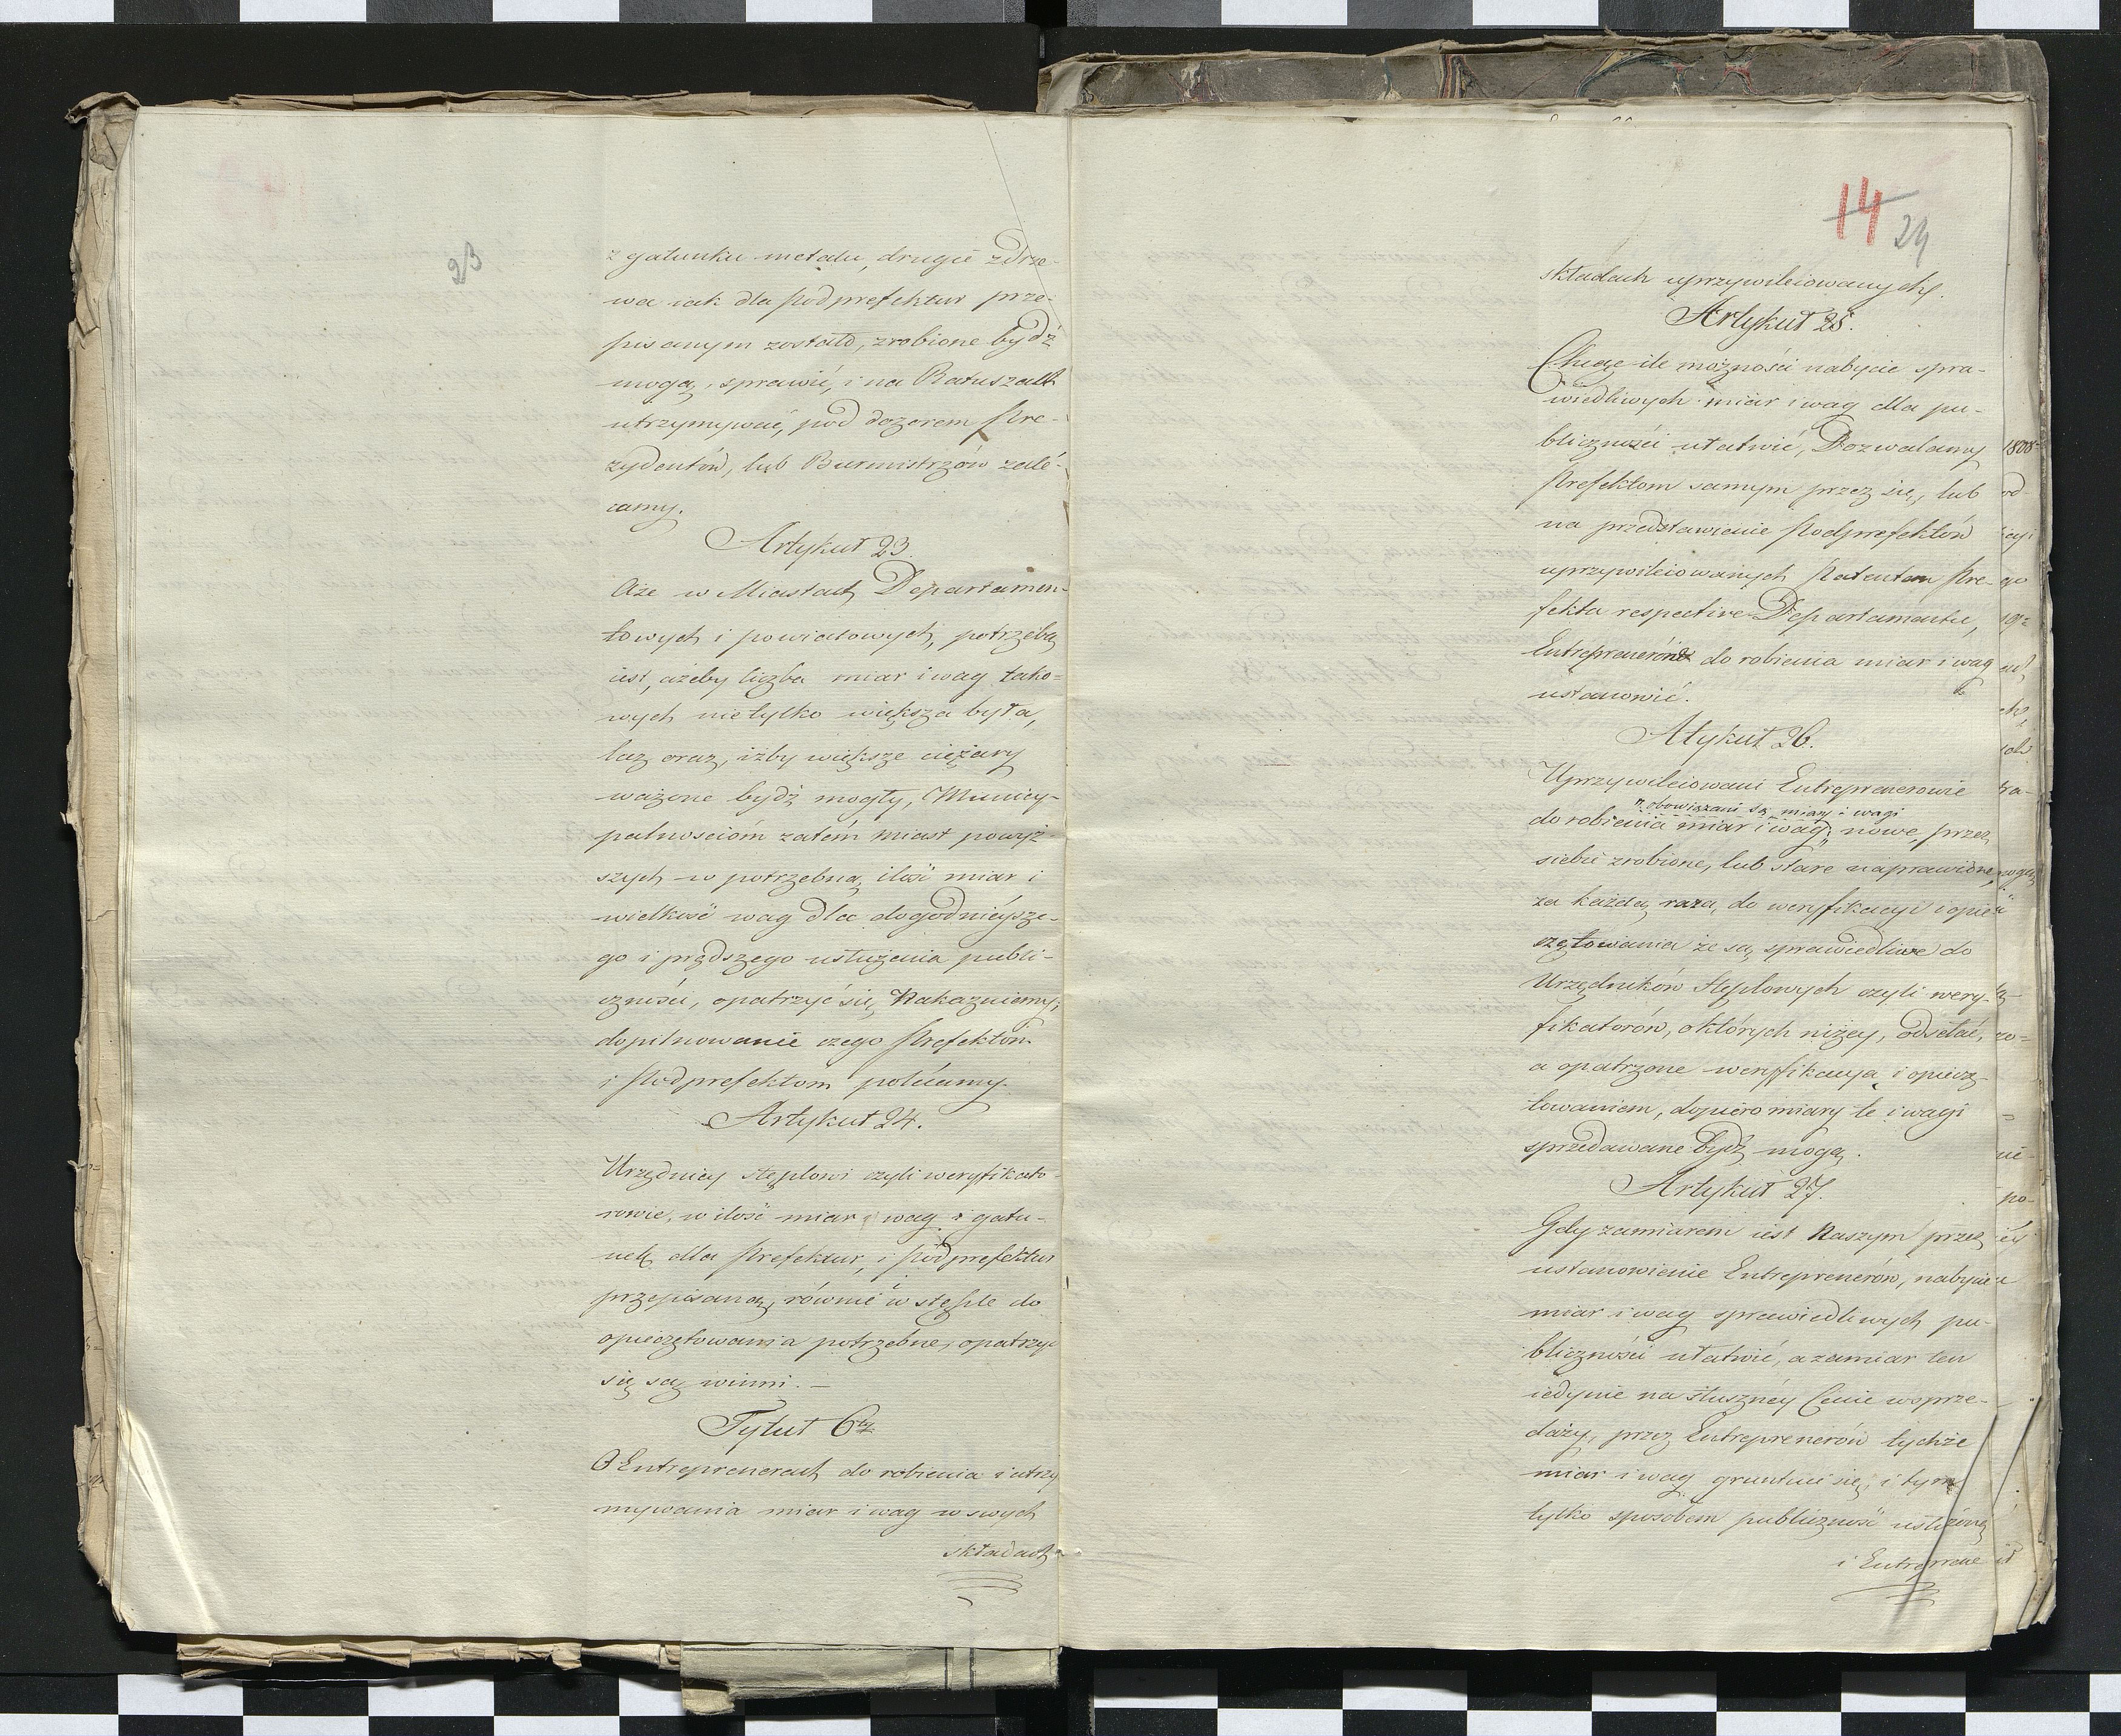 23
z gatunku metalu, drugie z drze-
wa iak dla Podprefektur prze-
pisanym zostało, zrobione bydź
mogą, sprawić, i na Ratuszach
utrzymywać, pod dozorem Pre-
zydentów, lub Burmistrzów zale-
camy.
Artykuł 23.
Aże w Miastach Departamen-
towych i powiatowych, potrzebą
iest, ażeby liczba miar i wag tako=
wych nietylko większa była,
lecz oraz, iżby większe ciężary
ważone bydź mogły, Municy-
palnościóm zatém miast powyż-
szych w potrzebną ilość miar i
wielkość wag dla dogodnieysze-
go i prędszego usłużenia publi-
czności, opatrzyć się Nakazuiemy,
dopilnowanie czego Prefektóm
i Podprefektom polécamy.
Artykuł 24.
Urzędnicy stęplowi czyli weryfikato-
rowie, w ilość miar i wag i gatu-
nek dla Prefektur, i Podprefektur
przepisaną, równie i w stęple do
opieczętowania potrzebne, opatrzyć
się są winni. —
Tytuł 6ty
O Entreprenerach do robienia i utrzy
mywania miar i wag w swych
składach
14
24
składach uprzywileiowanych.
Artykuł 25.
Chcąc ile możności nabycie spra-
wiedliwych miar i wag dla pu-
bliczności ułatwić, Dozwalamy
Prefektom samym przez się, lub
na przedstawienie Podprefektów
uprzywileiowanych Patentem Pre-
fekta respective Departamentu,
Entreprenerów do robienia miar i wag
ustanowić.
Atykuł 26.
Uprzywileiowani Entreprenerowie
" obowiązani są miary i wagi
do robienia miar i wag " nowe, przez
siebie zrobione, lub stare naprawione,
za każdą razą, do weryfikacyi i opie
czętowania że są sprawiedliwe do
Urzędników Stęplowych czyli wery-
fikatorów, o których niżey, odsełać,
a opatrzone weryfikacyą i opiecz-
towaniem, dopiero miary te i wagi
sprzedawane bydź mogą.
Artykuł 27.
Gdy zamiarem iest Naszym przez
ustanowienie Entreprenerów, nabycie
miar i wag sprawiedliwych pu-
bliczności ułatwić, a zamiar ten
iedynie na słusznéy Cenie w sprze-
daży, przez Entreprenerów tychże
miar i wag gruntuie się, i tym
tylko sposobem publiczność usłużoną
i Entreprene